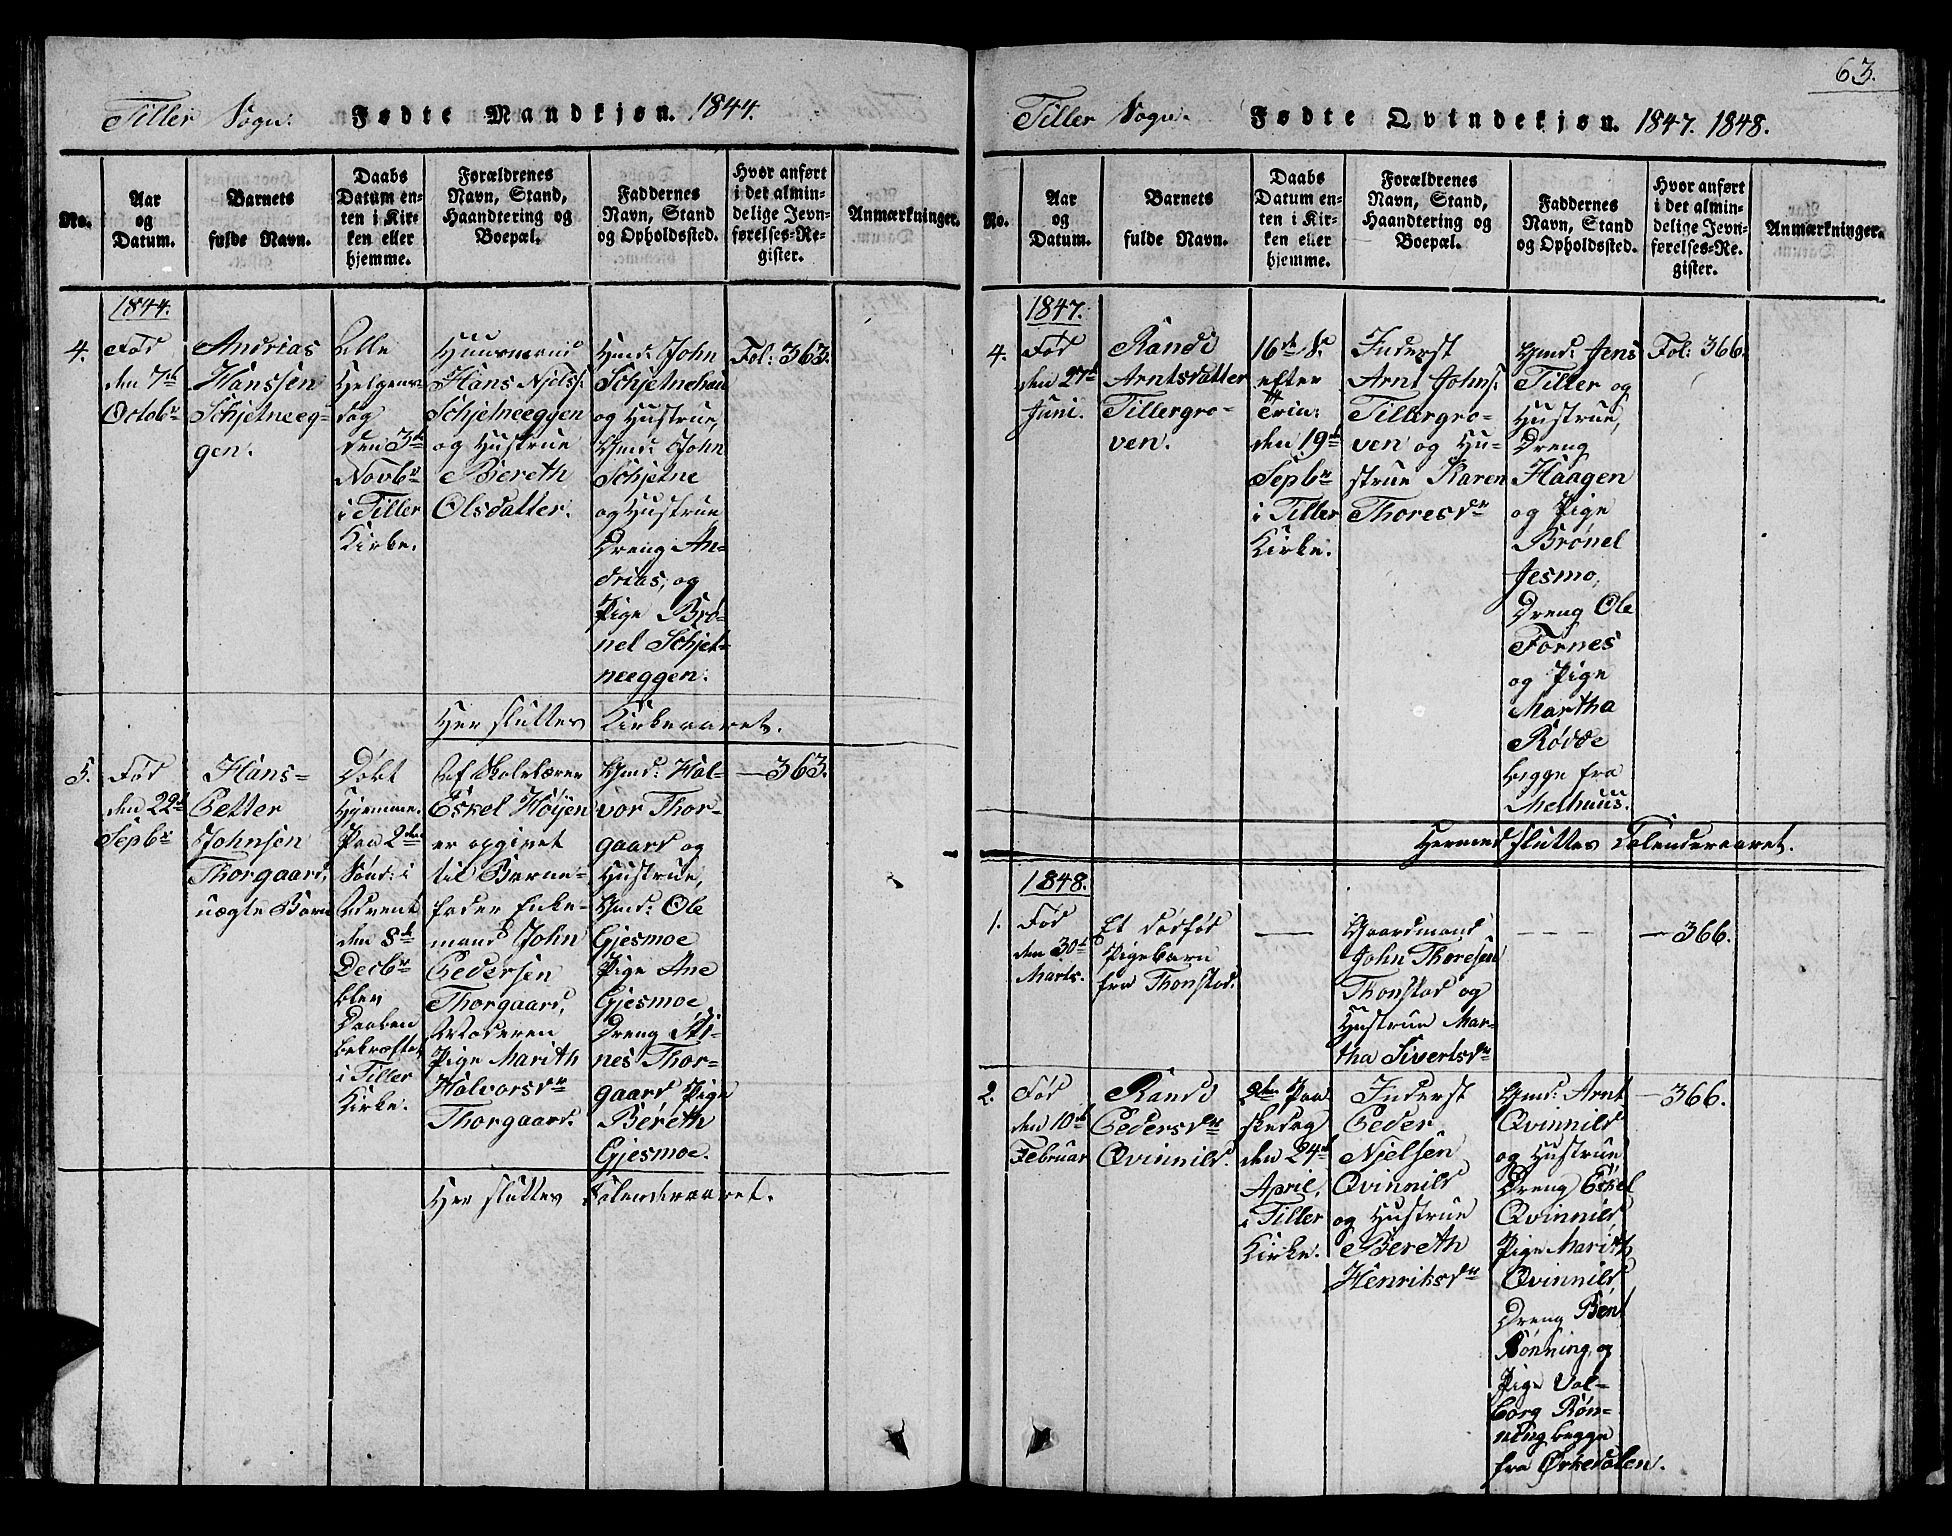 Tiller Sogn. Fødte Mandkjøn. 1844.
No.
Aar
og
Datum.
Barnets
fulde Navn.
Daabs
Datum en-
ten i Kir-
ken eller
hjemme.
Forældrenes
Navn, Stand,
Haandtering og
Boepæl.
Faddernes
Navn, Stand
og Opholdssted.
Hvor anført
i det almin-
delige Jevn-
førelses-Re-
gister.
Anmærkninger.
1844.
4.
Fød
den 7de
Octobr
Andrias
Hanssen
Schjetneeg-
gen.
Alle
Helgens-
dag
den 3de
Novbr
i Tiller
Kirke.
Huusmand
Hans Njelss:
Schjetneeggen
og Hustrue
Bereth
Olsdatter.
Gmd: John
Schjetnehau
og Hustrue,
Gmd: John
Schjetne
og Hustrue
Dreng An-
drias, og
Pige Brø-
nel Schjet-
neeggen.
Fol: 363.
Her sluttes Kirkeaaret.
5.
Fød
den 22de
Septbr
Hans-
Petter
Johnsen
Thorgaard,
uægte Barn
Døbt
hjemme.
Paa 2den
Sønd: i
Advent
den 8de
Decbr
blev
Daaben
bekræftet
i Tiller
Kirke.
Af Skolelærer
Eskel Høyen
er opgivet
til Barne-
fader Enke-
mand John
Pedersen
Thorgaard,
Moderen
Pige Marith
Halvorsdr
Thorgaard.
Gmd: Hal-
vor Thor-
gaard og
Hustrue,
Gmd: Ole
Gjesmoe
Pige Ane
Gjesmoe,
Dreng Sti-
nes Thor-
gaard Pige
Bereth
Gjesmoe.
— 363.
Her sluttes Calenderaaret.
63.
Tiller Sogn. Fødte Qvindekjøn. 1847. 1848.
No.
Aar
og
Datum.
Barnets
fulde Navn.
Daabs
Datum en-
ten i Kir-
ken eller
hjemme.
Forældrenes
Navn, Stand,
Haandtering og
Boepæl.
Faddernes
Navn, Stand
og Opholdssted.
Hvor anført
i det almin-
delige Jevn-
førelses-Re-
gister.
Anmærkninger.
1847.
4.
Fød
den 27de
Juni.
Randi
Arntsdatter
Tillergro-
ven.
16de S.
efter
Trin:
den 19de
Septbr
i Tiller
Kirke.
Inderst
Arnt Johns:
Tillergro-
ven og Hu-
strue Karen
Thoresdr
Gmd: Jens
Tiller og
Hustrue,
Dreng
Haagen
og Pige
Brønel
Jesmo,
Dreng Ole
Fornes
og Pige
Martha
Rødde
begge fra
Melhuus.
Fol: 366.
Hermed sluttes Calenderaaret.
1848.
1.
Fød
den 30de
Marts.
Et dødfød
Pigebarn
fra Thonstad.
—
Gaardmand
John Thoresen
Thonstad og
Hustrue Mar-
tha Sivertsdr
— — —
— 366.
2.
Fød
den 10de
Februar
Randi
Pedersdr
Qvinnild.
2den Paa
skedag
den 24de
April,
i Tiller
Kirke.
Inderst
Peder
Njelsen
Qvinnild
og Hustrue
Bereth
Henriksdr
Gmd: Arnt
Qvinnild
og Hustrue
Dreng Eskel
Qvinnild
Pige Marith
Qvinnild
Dreng Bent
Rønning, og
Pige Val-
borg Røn-
ning begge
fra Ørkedalen.
— 366.